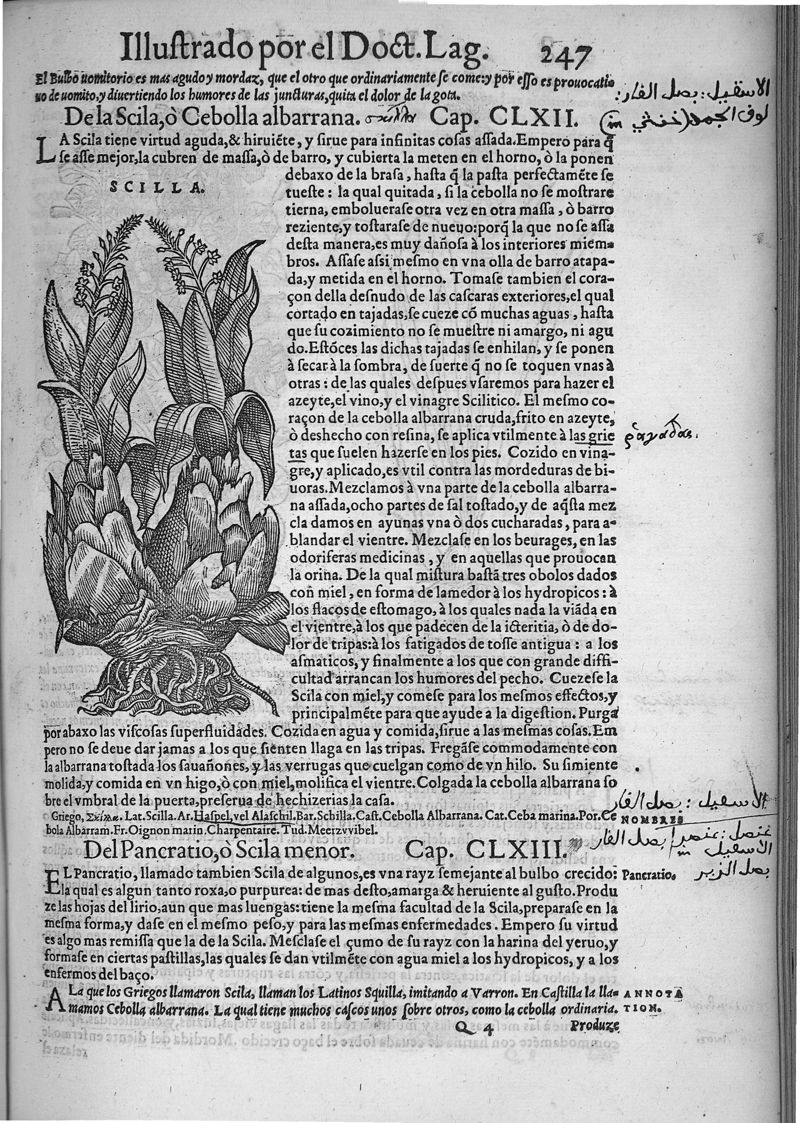 Illustrado por el Doct. Lag. 247
El Bulbo uomitorio es mas agudo y mordaz, que el otro que ordinariamente se come: y por esso es prouocati=
uo de uomito, y diuertiendo los humores de las juncturas, quita el dolor de la gota.
الاسقيل : بصل الفار :
De la Scila, ò Cebolla albarrana. Cap. CLXII.
LA Scila tiene virtud aguda, & hiruiẽte, y sirue para infinitas cosas assada. Empero para q̃
se asse mejor, la cubren de massa, ò de barro, y cubierta la meten en el horno, ò la ponen
SCILLA.
debaxo de la brasa, hasta q̃ la pasta perfectamẽte se
tueste: la qual quitada, si la cebolla no se mostrare
tierna, emboluerase otra vez en otra massa, ò barro
reziente, y tostarase de nueuo: porq̃ la que no se assa
desta manera, es muy dañosa à los interiores miem=
bros. Assase assi mesmo en vna olla de barro atapa=
da, y metida en el horno. Tomase tambien el cora=
çon della desnudo de las cascaras exteriores, el qual
cortado en tajadas, se cueze cõ muchas aguas, hasta
que su cozimiento no se muestre ni amargo, ni agu
do. Estõces las dichas tajadas se enhilan, y se ponen
à secar à la sombra, de suerte q̃ no se toquen vnas à
otras: de las quales despues vsaremos para hazer el
azeyte, el vino, y el vinagre Scilitico. El mesmo co=
raçon de la cebolla albarrana cruda, frito en azeyte,
ò deshecho con resina, se aplica vtilmente à las grie
tas que suelen hazerse en los pies. Cozido en vina=
gre, y aplicado, es vtil contra las mordeduras de bi=
uoras. Mezclamos à vna parte de la cebolla albarra=
na assada, ocho partes de sal tostado, y de aq̃sta mez
cla damos en ayunas vna ò dos cucharadas, para a=
blandar el vientre. Mezclase en los beurages, en las
odoriferas medicinas, y en aquellas que prouocan
la orina. De la qual mistura bastã tres obolos dados
coñ miel, en forma de lamedor à los hydropicos: à
los flacos de estomago, à los quales nada la viãda en
el vientre, à los que padecen de la icteritia, ò de do=
lor de tripas: à los fatigados de tosse antigua: a los
asmaticos, y finalmente a los que con grande diffi=
cultad arrancan los humores del pecho. Cuezese la
Scila con miel, y comese para los mesmos effectos, y
principalmẽte para que ayude a la digestion. Purga
por abaxo las viscosas superfluidades. Cozida en agua y comida, sirue a las mesmas cosas. Em
pero no se deue dar jamas a los que sienten llaga en las tripas. Fregãse commodamente con
la albarrana tostada los sauañones, y las verrugas que cuelgan como de vn hilo. Su simiente
molida, y comida en vn higo, ò con miel, molifica el vientre. Colgada la cebolla albarrana so
bre el vmbral de la puerta, preserua de hechizerias la casa.
الاسقيل : بصل الفار
Griego, Σκίλλα. Lat. Scilla. Ar. Haspel, vel Alaschil. Bar. Schilla. Cast. Cebolla Albarrana. Cat. Ceba marina. Por. Ce
bola Albarram. Fr. Oignon marin. Charpentaire. Tud. Meerzvvibel.
NOMBRES
Del Pancratio, ò Scila menor. Cap. CLXIII.
بصل الزير
EL Pancratio, llamado tambien Scila de algunos, es vna rayz semejante al bulbo crecido:
Pancratio.
la qual es algun tanto roxa, o purpurea: de mas desto, amarga & heruiente al gusto. Produ
ze las hojas del lirio, aun que mas luengas: tiene la mesma facultad de la Scila, preparase en la
mesma forma, y dase en el mesmo peso, y para las mesmas enfermedades. Empero su virtud
es algo mas remissa que la de la Scila. Mesclase el çumo de su rayz con la harina del yeruo, y
formase en ciertas pastillas, las quales se dan vtilmẽte con agua miel a los hydropicos, y a los
enfermos del baço.
A La que los Griegos llamaron Scila, llaman los Latinos Squilla, imitando a Varron. En Castilla la lla=
mamos Cebolla albarrana. La qual tiene muchos cascos unos sobre otros, como la cebolla ordinaria.
ANNOTA
TION.
Q 4 Produze